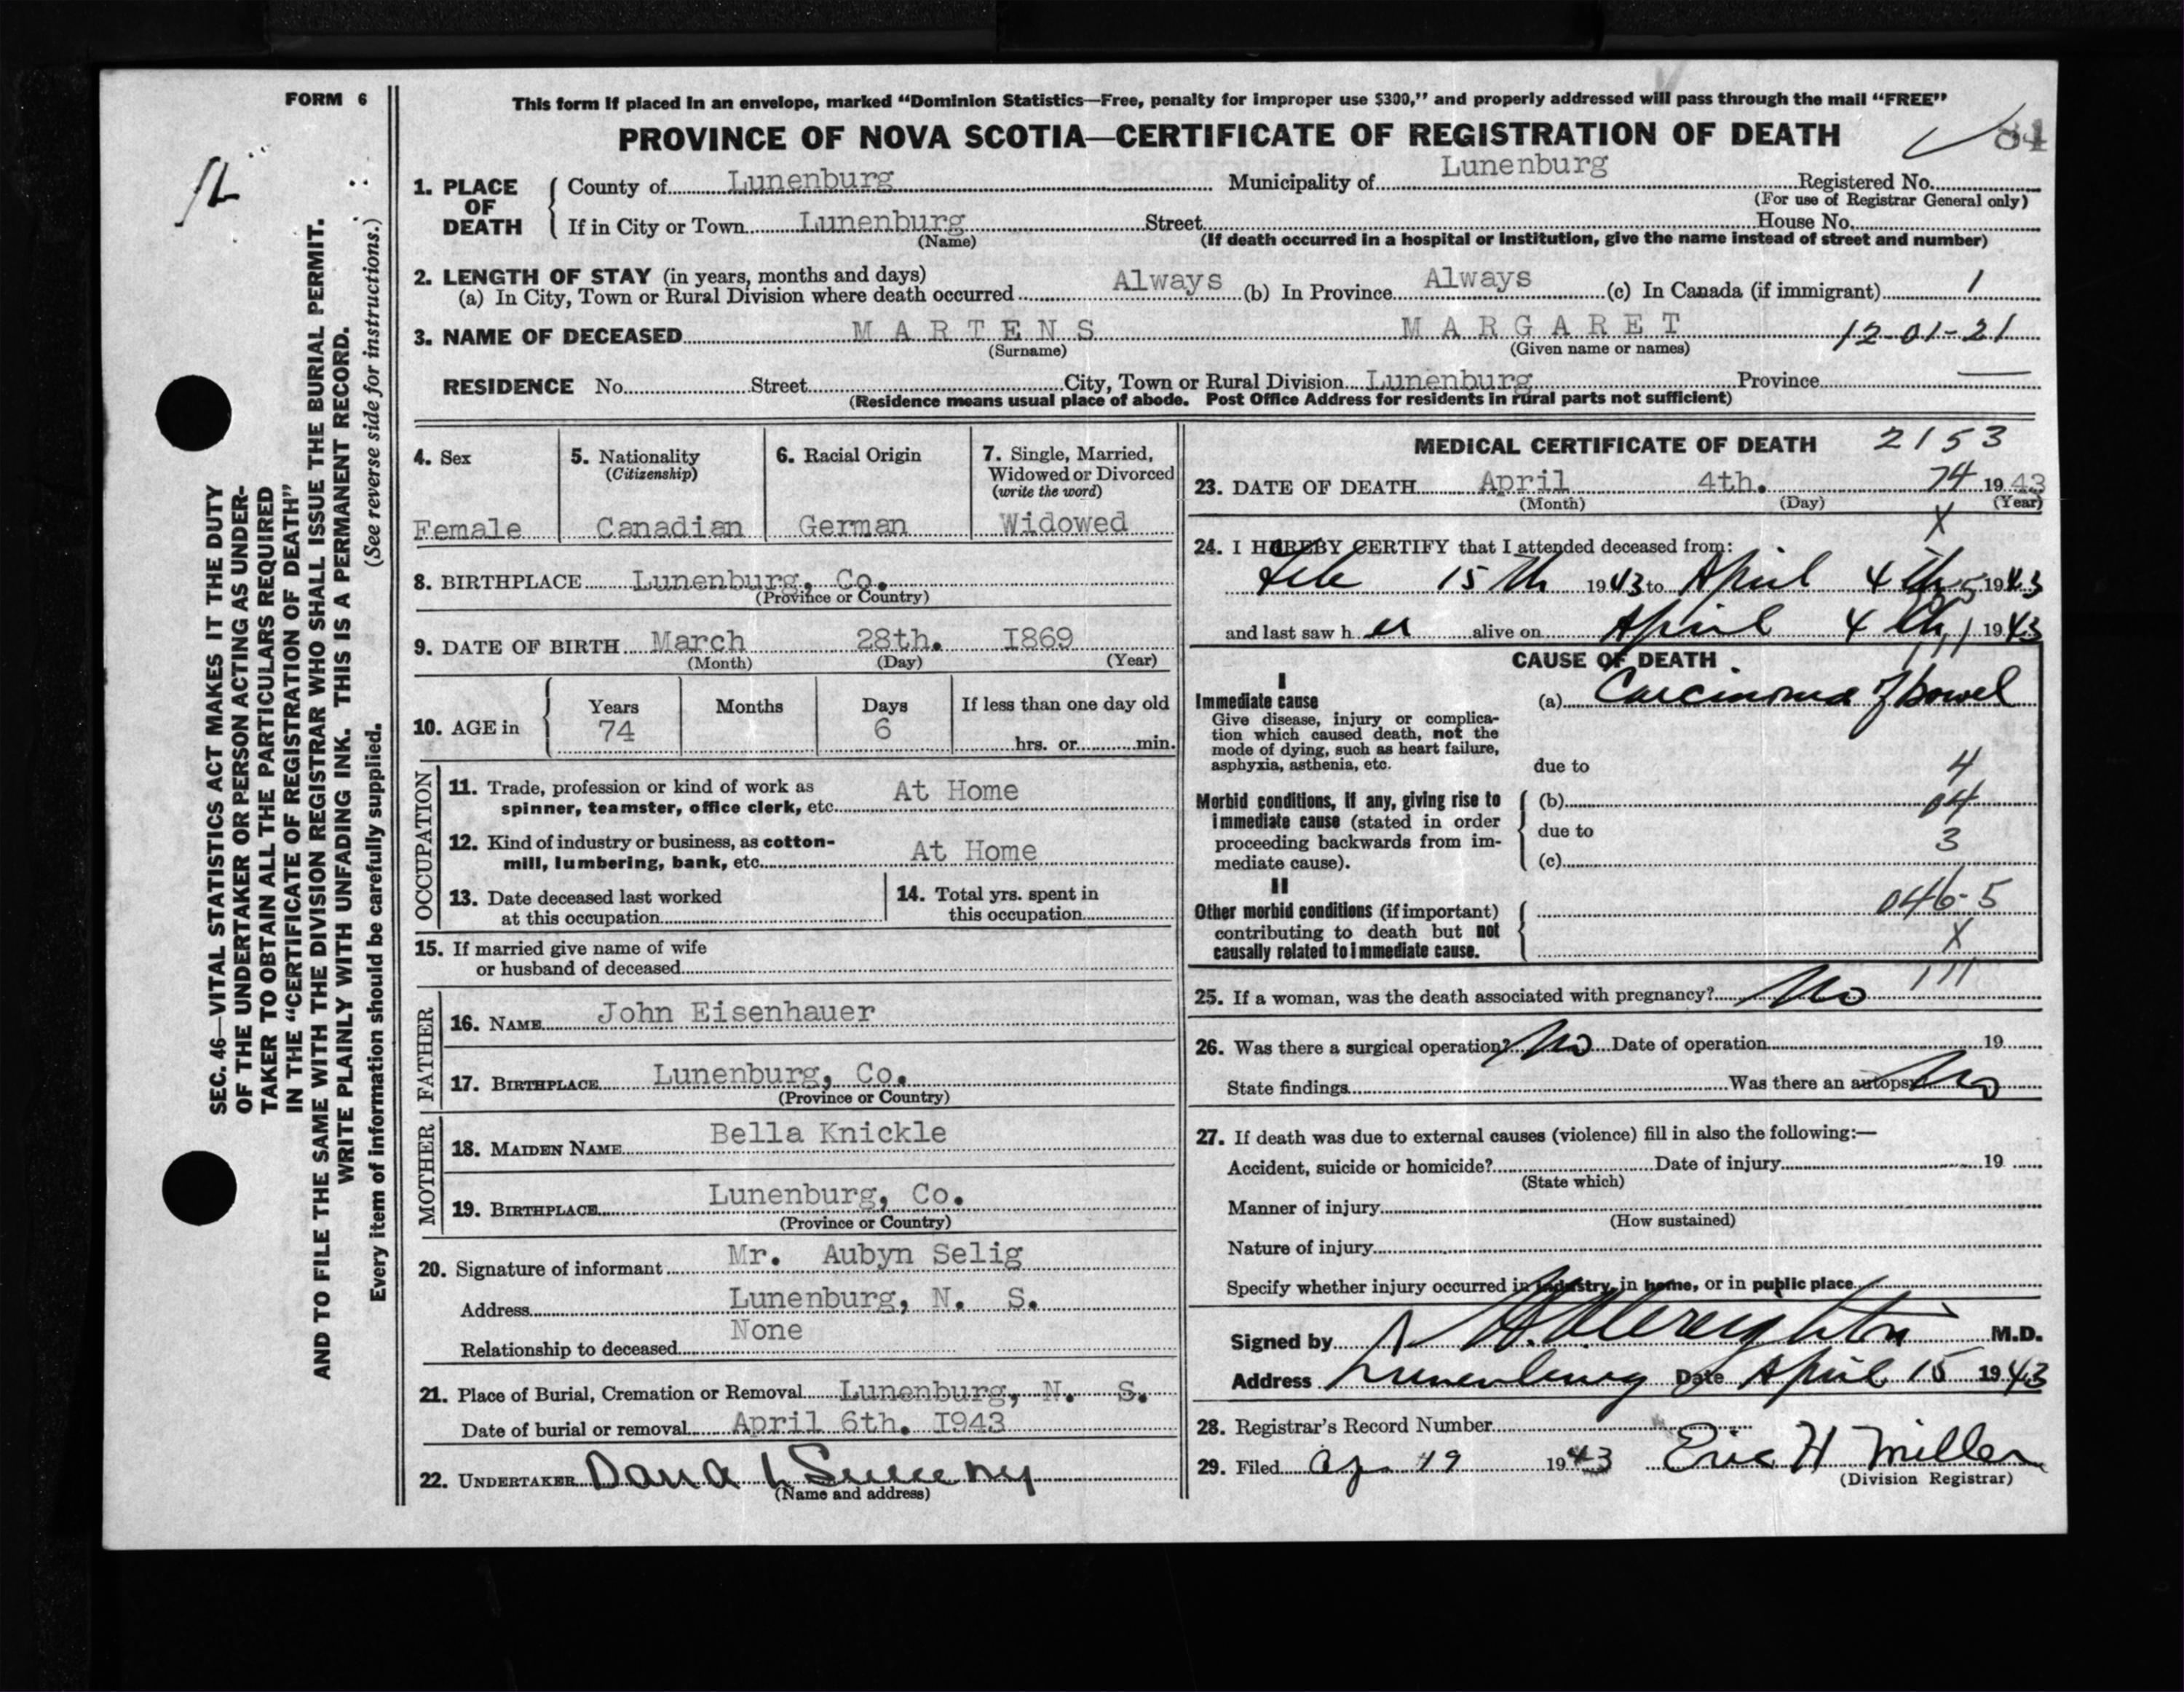 FORM 6
This form if placed in an envelope, marked “Dominion Statistics—Free, penalty for improper use $300,” and properly addressed will pass through the mail “FREE”
PROVINCE OF NOVA SCOTIA—CERTIFICATE OF REGISTRATION OF DEATH
84
1. PLACE OF DEATH
County of Lunenburg Municipality of Lunenburg Registered No.
(For use of Registrar General only)
If in City or Town Lunenburg Street House No.
(Name) (If death occurred in a hospital or institution, give the name instead of street and number)
2. LENGTH OF STAY (in years, months and days)
(a) In City, Town or Rural Division where death occurred Always (b) In Province Always (c) In Canada (if immigrant) 1
3. NAME OF DECEASED MARTENS MARGARET 12-01-21
(Surname) (Given name or names)
RESIDENCE No. Street City, Town or Rural Division Lunenburg Province
(Residence means usual place of abode. Post Office Address for residents in rural parts not sufficient)
SEC. 46—VITAL STATISTICS ACT MAKES IT THE DUTY
OF THE UNDERTAKER OR PERSON ACTING AS UNDER-
TAKER TO OBTAIN ALL THE PARTICULARS REQUIRED
IN THE “CERTIFICATE OF REGISTRATION OF DEATH”
AND TO FILE THE SAME WITH THE DIVISION REGISTRAR WHO SHALL ISSUE THE BURIAL PERMIT.
WRITE PLAINLY WITH UNFADING INK. THIS IS A PERMANENT RECORD.
Every item of information should be carefully supplied. (See reverse side for instructions.)
4. Sex
Female
5. Nationality
(Citizenship)
Canadian
6. Racial Origin
German
7. Single, Married,
Widowed or Divorced
(write the word)
Widowed
8. BIRTHPLACE Lunenburg, Co.
(Province or Country)
9. DATE OF BIRTH March 28th. 1869
(Month) (Day) (Year)
10. AGE in
Years Months Days If less than one day old
74 6
hrs. or min.
OCCUPATION
11. Trade, profession or kind of work as
spinner, teamster, office clerk, etc. At Home
12. Kind of industry or business, as cotton-
mill, lumbering, bank, etc. At Home
13. Date deceased last worked
at this occupation
14. Total yrs. spent in
this occupation
15. If married give name of wife
or husband of deceased
FATHER
16. NAME John Eisenhauer
17. BIRTHPLACE Lunenburg, Co.
(Province or Country)
MOTHER
18. MAIDEN NAME Bella Knickle
19. BIRTHPLACE Lunenburg, Co.
(Province or Country)
20. Signature of informant Mr. Aubyn Selig
Address Lunenburg, N. S.
Relationship to deceased None
21. Place of Burial, Cremation or Removal Lunenburg, N. S.
Date of burial or removal April 6th. 1943
22. UNDERTAKER Dana L Sweeny
(Name and address)
MEDICAL CERTIFICATE OF DEATH 2153
23. DATE OF DEATH April 4th. 74 1943
(Month) (Day) (Year)
X
24. I HEREBY CERTIFY that I attended deceased from:
Feb 15th 1943 to April 4th 1943
and last saw her alive on April 4th 1943
CAUSE OF DEATH
I
Immediate cause
Give disease, injury or complica-
tion which caused death, not the
mode of dying, such as heart failure,
asphyxia, asthenia, etc.
(a) Carcinoma of bowel
due to 4
Morbid conditions, if any, giving rise to
immediate cause (stated in order
proceeding backwards from im-
mediate cause).
(b) 04
due to 3
(c)
II
Other morbid conditions (if important)
contributing to death but not
causally related to immediate cause.
046-5
X
111
25. If a woman, was the death associated with pregnancy? No
26. Was there a surgical operation? No Date of operation 19
State findings Was there an autopsy No
27. If death was due to external causes (violence) fill in also the following:—
Accident, suicide or homicide? Date of injury 19
(State which)
Manner of injury
(How sustained)
Nature of injury
Specify whether injury occurred in industry, in home, or in public place
Signed by Creighton M.D.
Address Lunenburg Date April 15 1943
28. Registrar's Record Number
29. Filed Ap 19 1943 Eric H Miller
(Division Registrar)